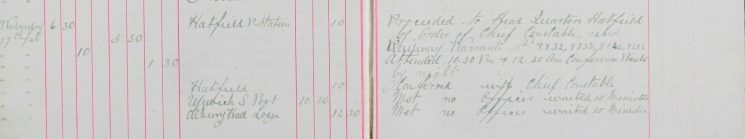 Wednesday 6 30 Hatfield P. Station 10 Proceeded to Head Quarters Hatfield
17th 5 30 by order of Chief Constable, used
10 Railway Warrants
1 30 Attended 10.30 Pm & 12.30 Am Conference Points
by night
Hatfield 10 Conferred with Chief Constable
S. Post 10 30 Met no Officer waited 15 Minutes
Lodge 12 30 Met no Officer waited 15 Minutes